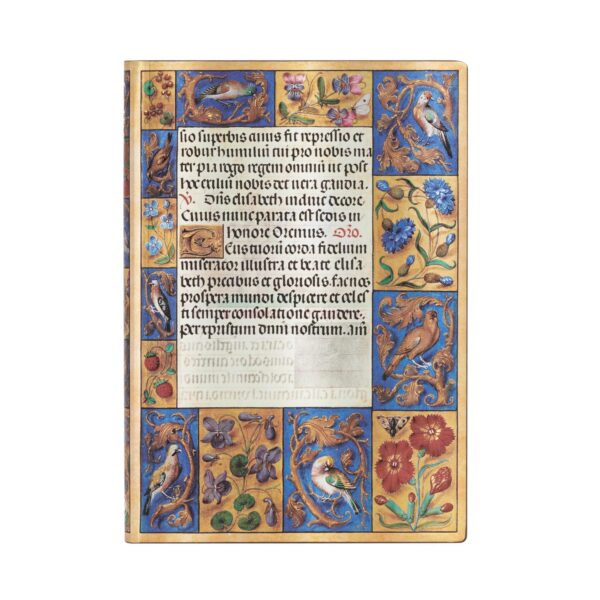 sio superbis cuius fit repressio et
robur humiliū cui pro nobis ma
ter pia rogo regem omniū ut post
hec exiliū nobis det uera gaudia.
V. elisabeth induit decore.
Cuius nunc parata est sedis in
honore Oremus. Oro.
corda fidelium
miserator illustra et beate elisa
beth precibus et gloriosis. fac nos
prospera mundi despicere et celes
ti semper consolatione gaudere.
per xpristum dnm nostrum. am